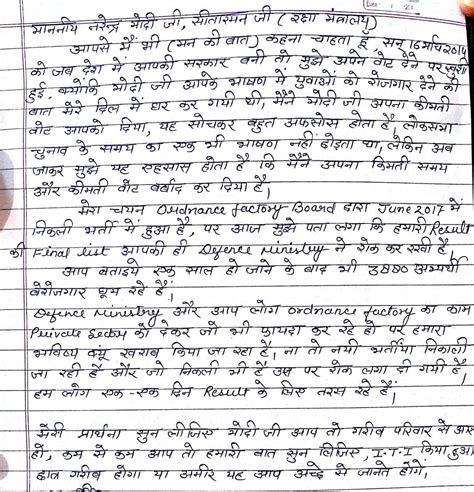 माननीय नरेन्द्र मोदी जी, सीतारमन जी (रक्षा मंत्रालय)
आपसे मैं भी (मन की बात) कहना चाहता हूँ, सन् 16 मई 2014
को जब देश में आपकी सरकार बनी तो मुझे अपने वोट देने पर खुशी
हुई, क्योंकि मोदी जी आपके भाषण में युवाओं को रोजगार देने की
बात मेरे दिल में घर कर गयी थी, मैंने मोदी जी अपना कीमती
वोट आपको दिया, यह सोचकर बहुत अफसोस होता है, लोकसभा
चुनाव के समय का एक भी भाषण नहीं छोड़ता था, लेकिन अब
जाकर मुझे यह एहसास होता है कि मैंने अपना किमती समय
और कीमती वोट बर्बाद कर दिया है,
मेरा चयन Ordnance factory Board द्वारा June 2017 में
निकली भर्ती में हुआ है, पर आज मुझे पता लगा कि हमारी Result
की Final list आपकी ही Defence Ministry ने रोक कर रखी है,
आप बताइये एक साल हो जाने के बाद भी 3880 अभ्यर्थी
बेरोजगार घूम रहे हैं,
Defence Ministry और आप लोग Ordnance factory का काम
Private Sector को देकर जो भी फायदा कर रहे हो पर हमारा
भविष्य क्यूं खराब किया जा रहा है, ना तो नयी भर्तीयां निकाली
जा रही हैं और जो निकली भी हैं उस पर रोक लगा दी गयी है,
हम लोग एक-एक दिन Result के लिए तरस रहे हैं,
मेरी प्रार्थना सुन लीजिए मोदी जी आप तो गरीब परिवार से आए
हो, कम से कम आप तो हमारी बात सुन लिजिए, I.T.I किया हुआ
छात्र गरीब होगा या अमीर यह आप अच्छे से जानते होंगे,